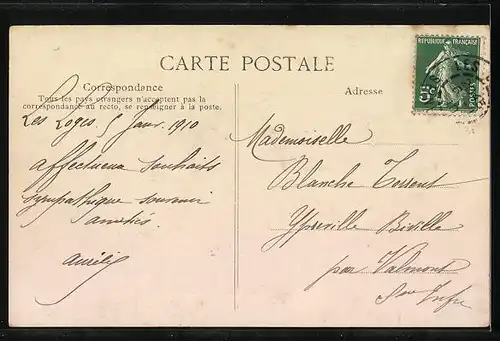 CARTE POSTALE
Correspondance
Tous les pays étrangers n'acceptent pas la
correspondance au recto, se renseigner à la poste.
Les Loges 5 Janv. 1910
affectueux souhaits
sympathique souvenir
amitiés
Adresse
REPUBLIQUE FRANÇAISE
5c
POSTES
Mademoiselle
Blanche Torrent
Ypreville Biville
par Valmont
Sne Infre